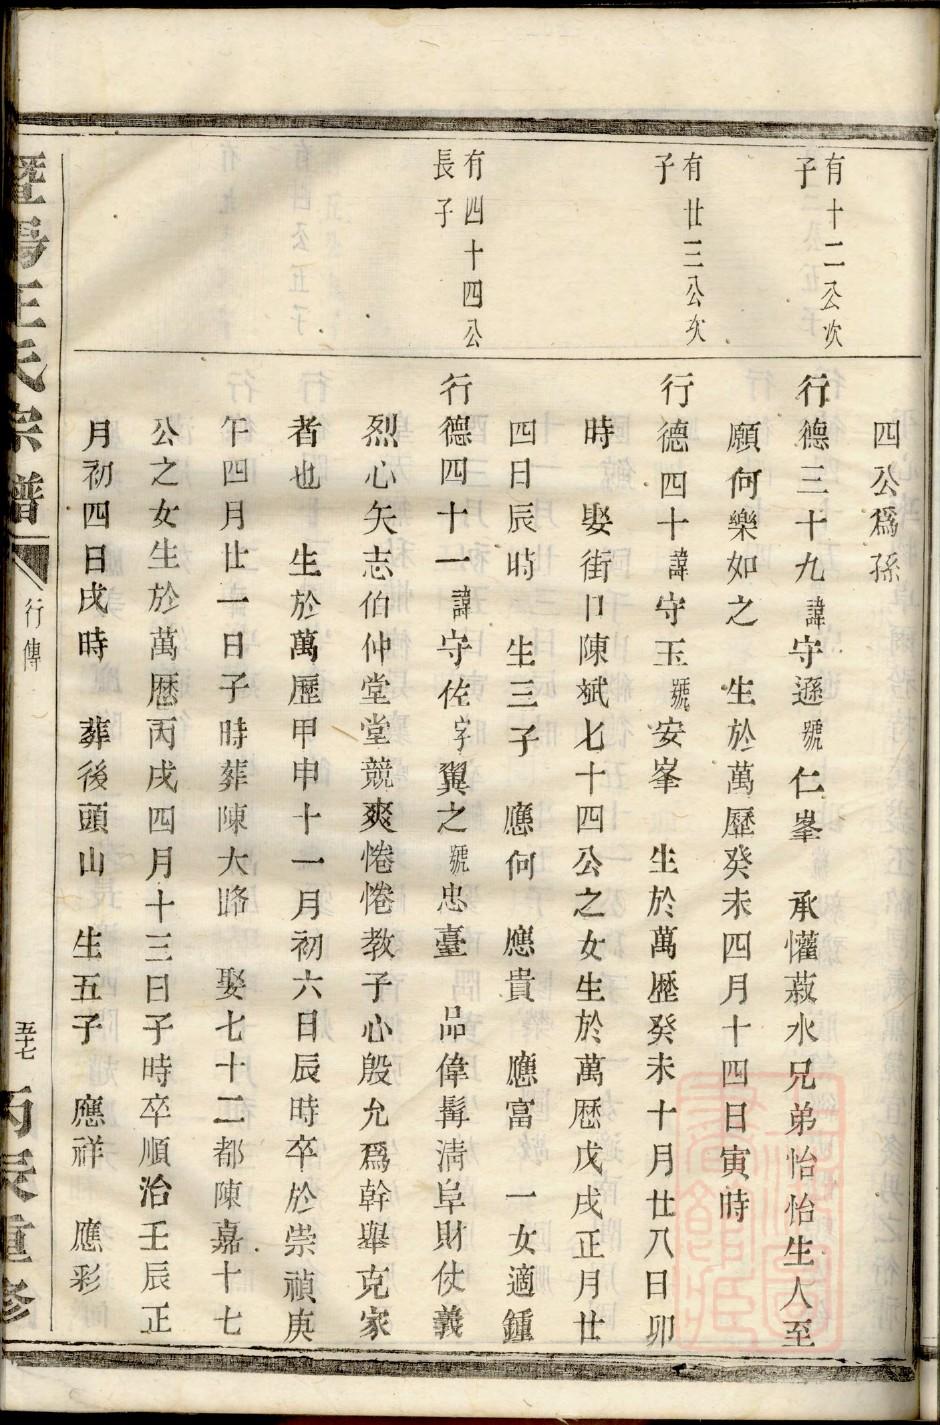 四公爲孫
有十二公次
子
行德三十九諱守遜號仁峯　承懽菽水兄弟怡怡生人至
願何樂如之　生於萬歷癸未四月十四日寅時
有廿三公次
子
行德四十諱守玉號安峯　生於萬歷癸未十月廿八日卯
時　娶街口陳斌七十四公之女生於萬歷戊戌正月廿
四日辰時　生三子　應何　應貴　應富　一女適鍾
有四十四公
長子
行德四十一諱守佐字翼之號忠臺　品偉髯清阜財仗義
烈心矢志伯仲堂堂競爽惓惓教子心殷允爲幹舉克家
者也　生於萬歷甲申十一月初六日辰時卒於崇禎庚
午四月廿一日子時葬陳大路　娶七十二都陳嘉十七
公之女生於萬歷丙戌四月十三日子時卒順治壬辰正
月初四日戌時　葬後頭山　生五子　應祥　應彩
暨陽王氏宗譜　行傳　五十七　丙辰重修